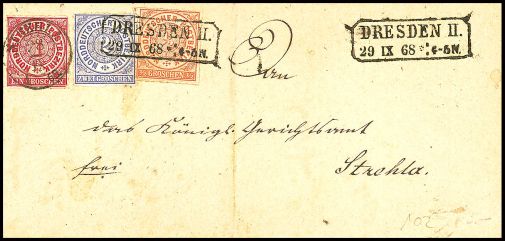 NORDDEUTSCHER POSTBEZIRK
EIN GROSCHEN
NORDDEUTSCHER POSTBEZIRK
ZWEI GROSCHEN
NORDDEUTSCHER POSTBEZIRK
1/2 GROSCHEN 1/2
DRESDEN II.
29 IX 68 6-8N.
DRESDEN II.
29 IX 68 6-8N.
An
das Königl. Gerichtsamt
frei
Strehla.